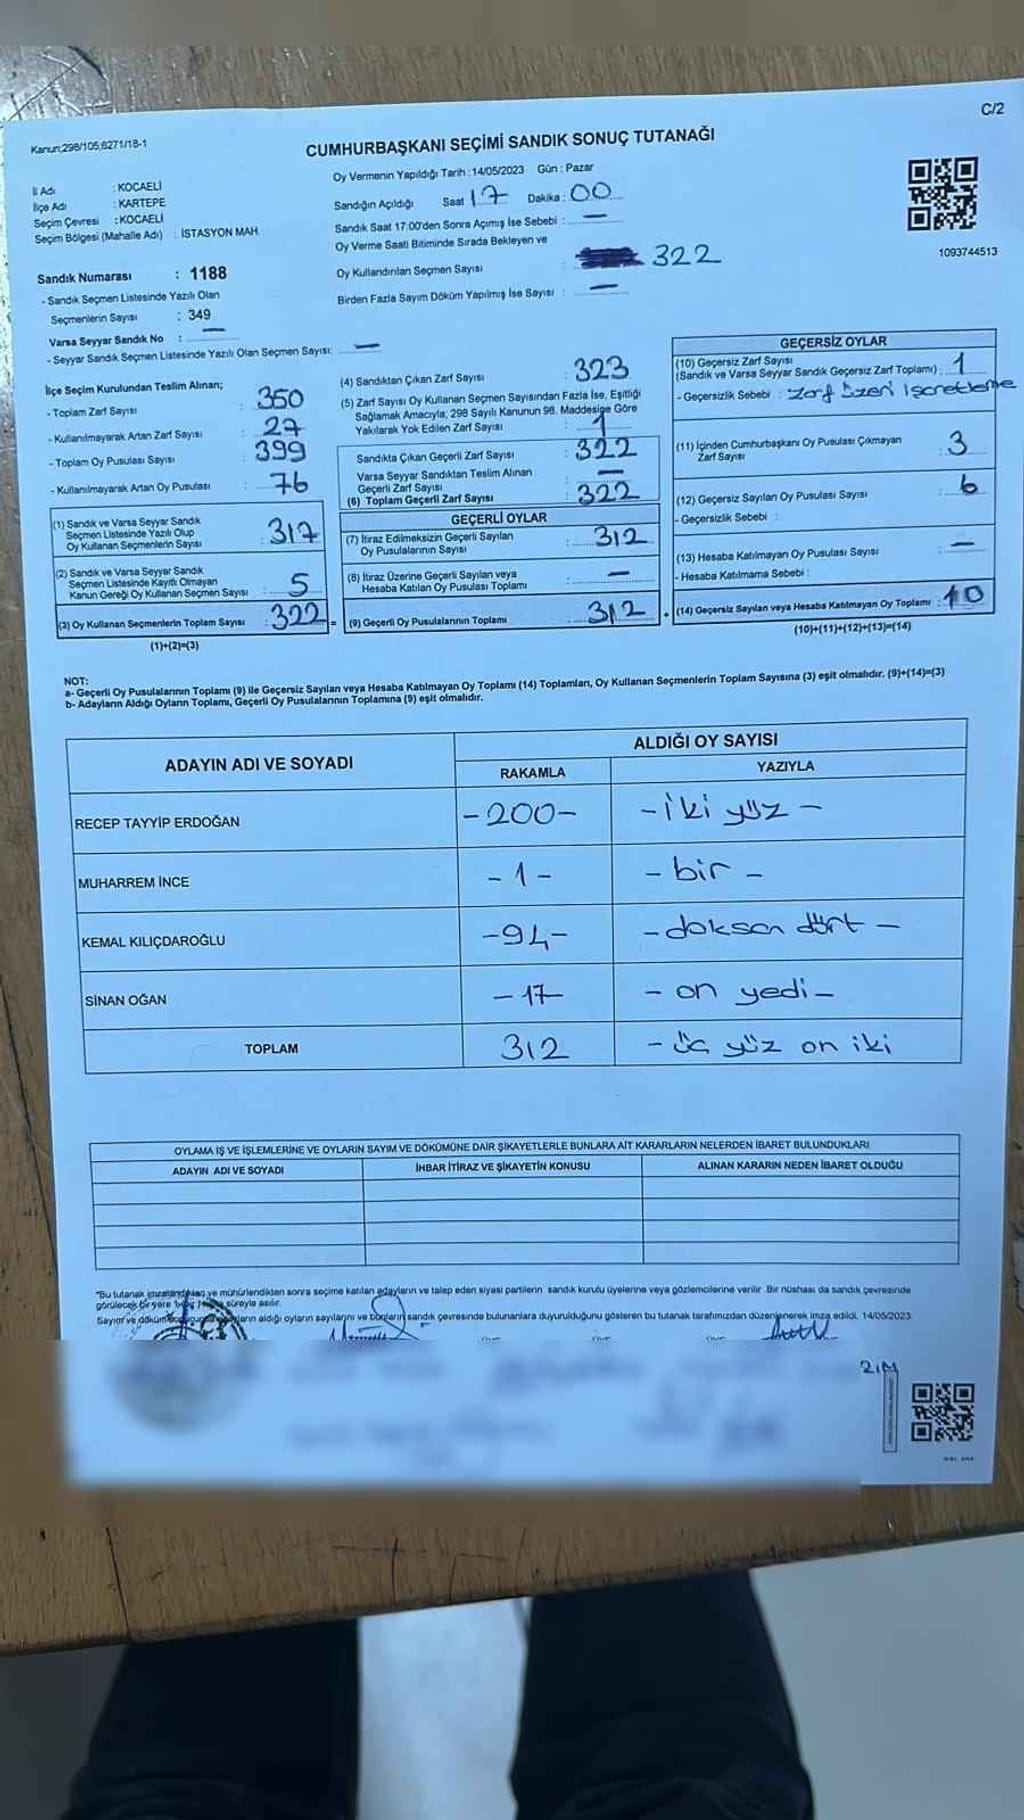 C/2
Kanun;298/105;6271/18-1
CUMHURBAŞKANI SEÇİMİ SANDIK SONUÇ TUTANAĞI
İl Adı : KOCAELİ
İlçe Adı : KARTEPE
Seçim Çevresi : KOCAELİ
Seçim Bölgesi (Mahalle Adı) : İSTASYON MAH.
Sandık Numarası : 1188
- Sandık Seçmen Listesinde Yazılı Olan
Seçmenlerin Sayısı : 349
Varsa Seyyar Sandık No : —
- Seyyar Sandık Seçmen Listesinde Yazılı Olan Seçmen Sayısı: —
Oy Vermenin Yapıldığı Tarih : 14/05/2023 Gün : Pazar
Sandığın Açıldığı Saat 17 Dakika : 00
Sandık Saat 17:00'den Sonra Açılmış İse Sebebi : —
Oy Verme Saati Bitiminde Sırada Bekleyen ve
Oy Kullandırılan Seçmen Sayısı : 322
Birden Fazla Sayım Döküm Yapılmış İse Sayısı : —
1093744513
İlçe Seçim Kurulundan Teslim Alınan;
- Toplam Zarf Sayısı : 350
- Kullanılmayarak Artan Zarf Sayısı : 27
- Toplam Oy Pusulası Sayısı : 399
- Kullanılmayarak Artan Oy Pusulası : 76
(1) Sandık ve Varsa Seyyar Sandık
Seçmen Listesinde Yazılı Olup
Oy Kullanan Seçmenlerin Sayısı : 317
(2) Sandık ve Varsa Seyyar Sandık
Seçmen Listesinde Kayıtlı Olmayan
Kanun Gereği Oy Kullanan Seçmen Sayısı : 5
(3) Oy Kullanan Seçmenlerin Toplam Sayısı : 322 =
(1)+(2)=(3)
(4) Sandıktan Çıkan Zarf Sayısı : 323
(5) Zarf Sayısı Oy Kullanan Seçmen Sayısından Fazla İse, Eşitliği
Sağlamak Amacıyla; 298 Sayılı Kanunun 98. Maddesine Göre
Yakılarak Yok Edilen Zarf Sayısı : 1
Sandıkta Çıkan Geçerli Zarf Sayısı : 322
Varsa Seyyar Sandıktan Teslim Alınan
Geçerli Zarf Sayısı : —
(6) Toplam Geçerli Zarf Sayısı : 322
GEÇERLİ OYLAR
(7) İtiraz Edilmeksizin Geçerli Sayılan
Oy Pusulalarının Sayısı : 312
(8) İtiraz Üzerine Geçerli Sayılan veya
Hesaba Katılan Oy Pusulası Toplamı : —
(9) Geçerli Oy Pusulalarının Toplamı : 312 +
GEÇERSİZ OYLAR
(10) Geçersiz Zarf Sayısı
(Sandık ve Varsa Seyyar Sandık Geçersiz Zarf Toplamı) : 1
- Geçersizlik Sebebi : Zarf üzeri İşaretleme
(11) İçinden Cumhurbaşkanı Oy Pusulası Çıkmayan
Zarf Sayısı : 3
(12) Geçersiz Sayılan Oy Pusulası Sayısı : 6
- Geçersizlik Sebebi :
(13) Hesaba Katılmayan Oy Pusulası Sayısı : —
- Hesaba Katılmama Sebebi :
(14) Geçersiz Sayılan veya Hesaba Katılmayan Oy Toplamı : 10
(10)+(11)+(12)+(13)=(14)
NOT:
a- Geçerli Oy Pusulalarının Toplamı (9) ile Geçersiz Sayılan veya Hesaba Katılmayan Oy Toplamı (14) Toplamları, Oy Kullanan Seçmenlerin Toplam Sayısına (3) eşit olmalıdır. (9)+(14)=(3)
b- Adayların Aldığı Oyların Toplamı, Geçerli Oy Pusulalarının Toplamına (9) eşit olmalıdır.
ADAYIN ADI VE SOYADI ALDIĞI OY SAYISI
RAKAMLA YAZIYLA
RECEP TAYYİP ERDOĞAN -200- -iki yüz-
MUHARREM İNCE -1- -bir-
KEMAL KILIÇDAROĞLU -94- -doksan dört-
SİNAN OĞAN -17- -on yedi-
TOPLAM 312 -üç yüz on iki
OYLAMA İŞ VE İŞLEMLERİNE VE OYLARIN SAYIM VE DÖKÜMÜNE DAİR ŞİKAYETLERLE BUNLARA AİT KARARLARIN NELERDEN İBARET BULUNDUKLARI
ADAYIN ADI VE SOYADI İHBAR İTİRAZ VE ŞİKAYETİN KONUSU ALINAN KARARIN NEDEN İBARET OLDUĞU
"Bu tutanak imzalandıktan ve mühürlendikten sonra seçime katılan adayların ve talep eden siyasi partilerin sandık kurulu üyelerine veya gözlemcilerine verilir. Bir nüshası da sandık çevresinde
görülecek bir yere süreyle asılır.
Sayım ve döküm aldığı oyların sayılarını ve bunların sandık çevresinde bulunanlara duyurulduğunu gösteren bu tutanak tarafımızdan düzenlenerek imza edildi. 14/05/2023